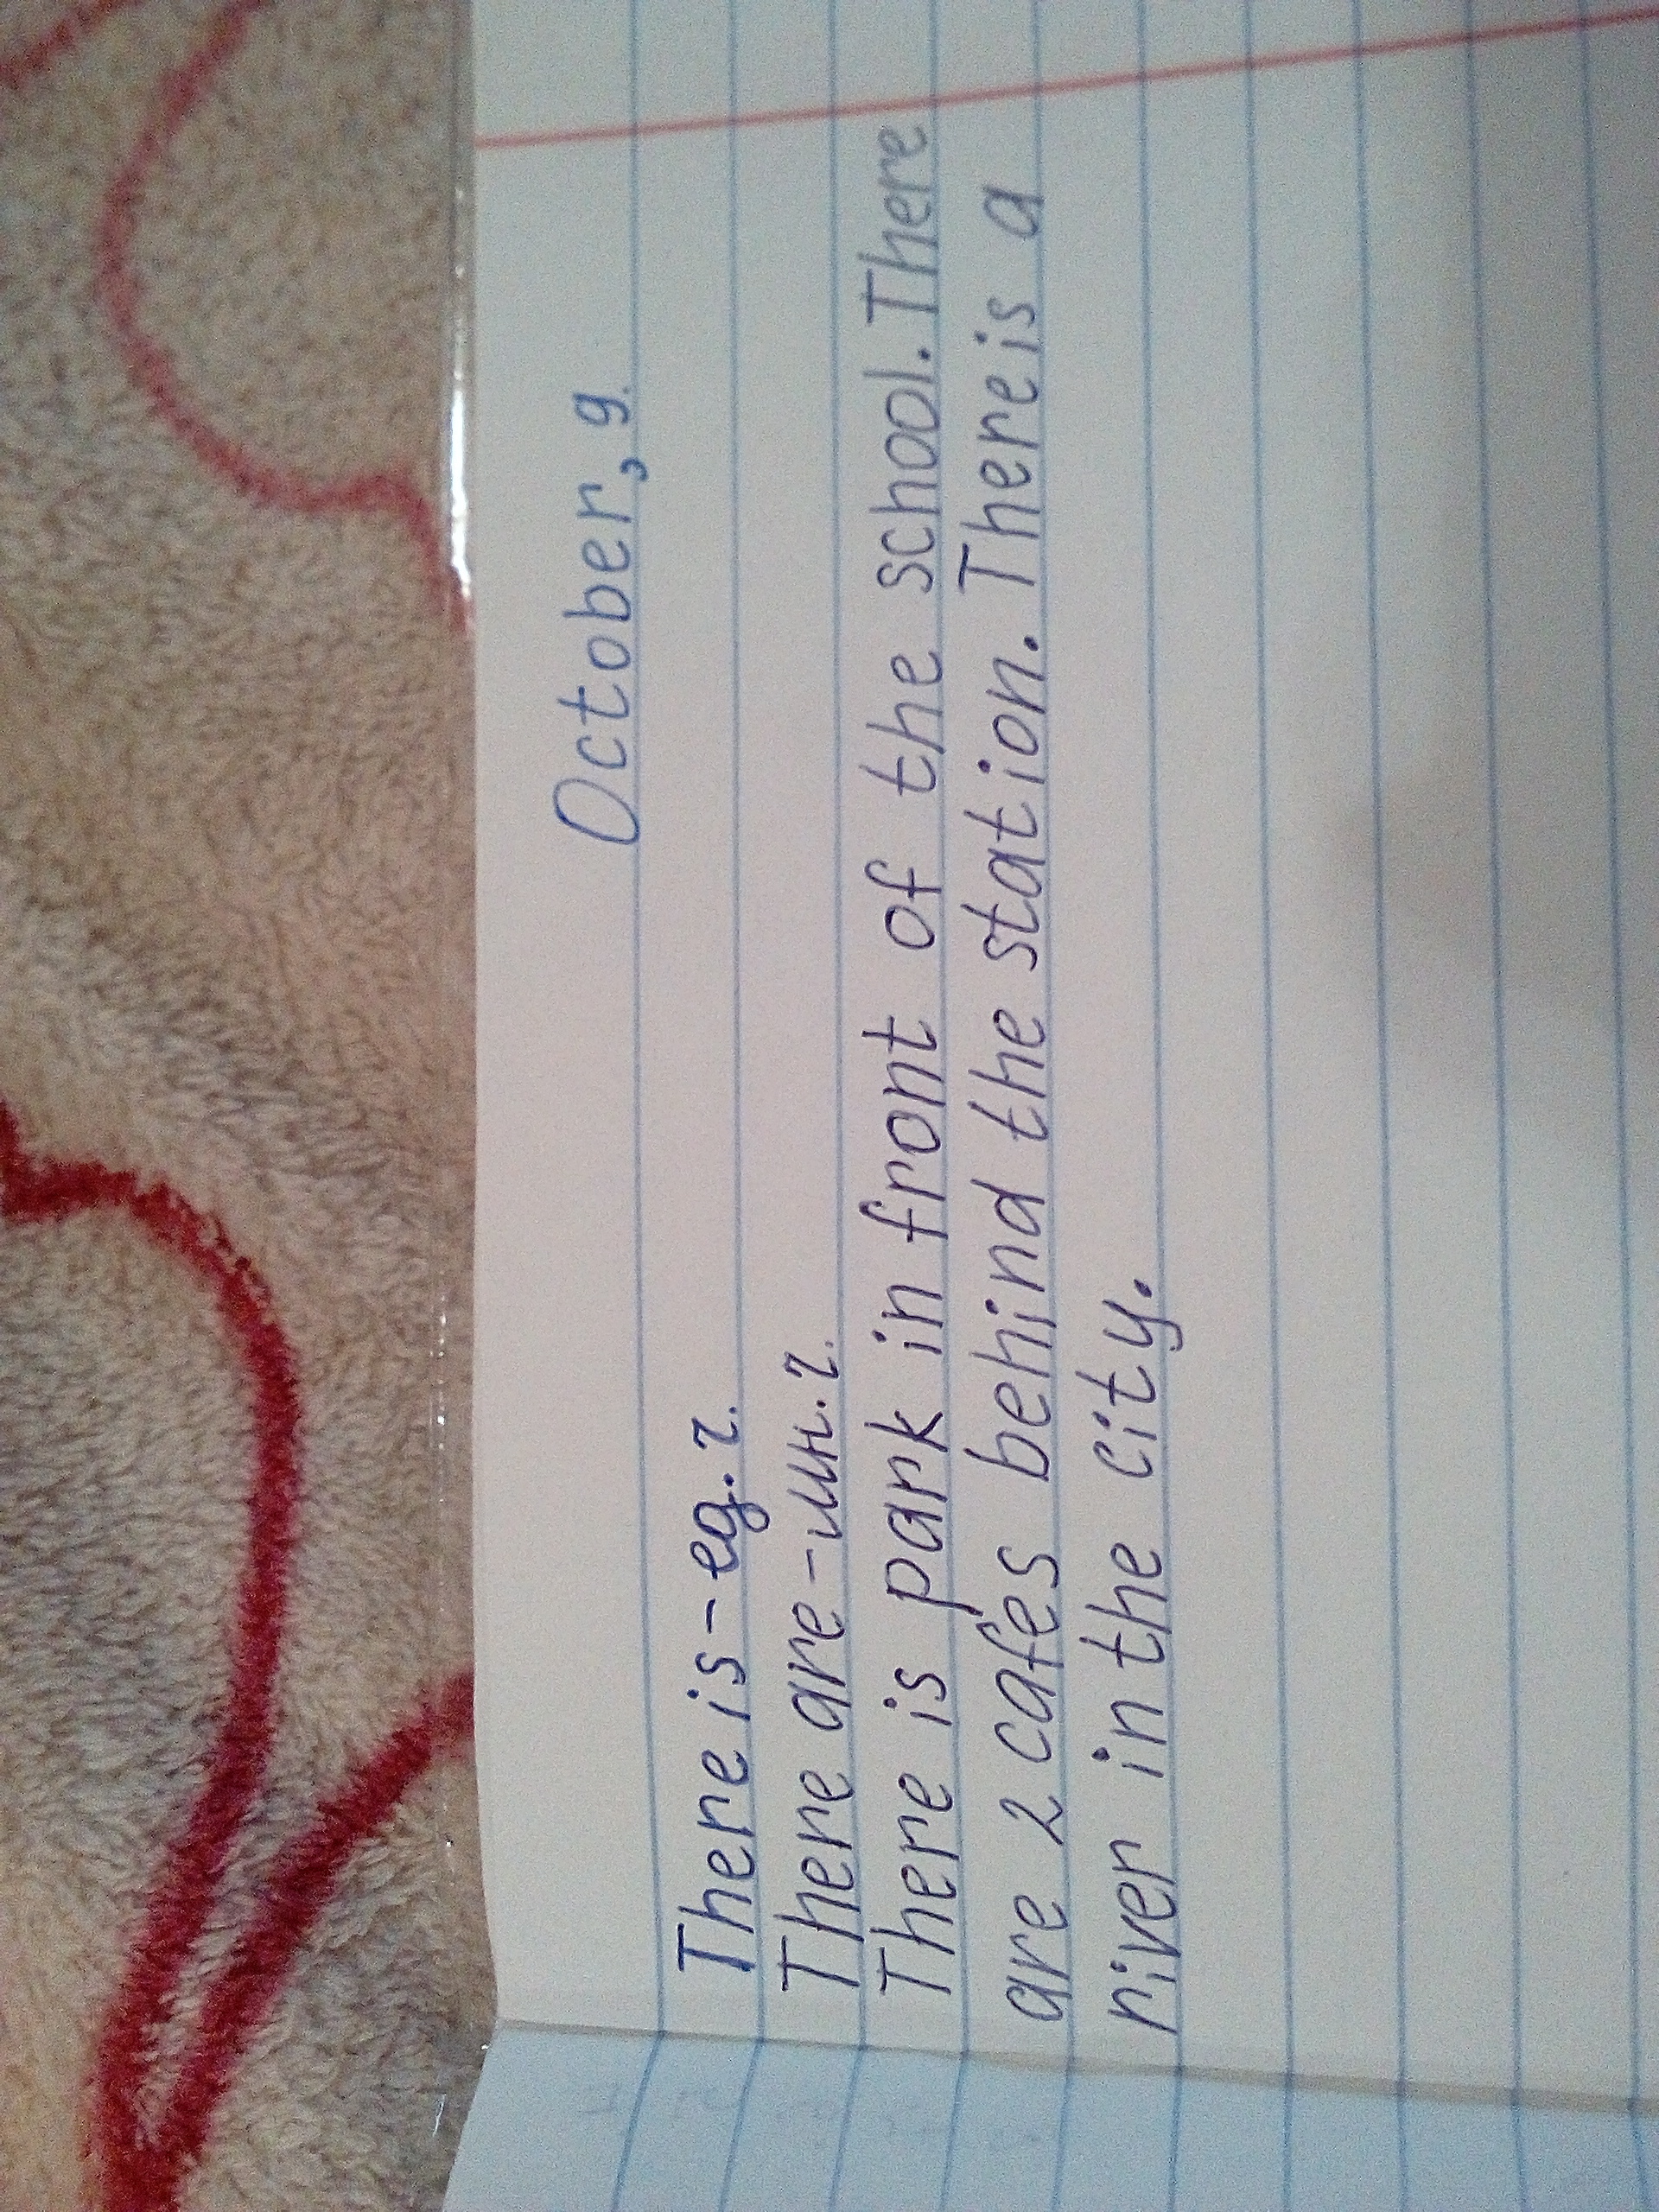 October, 9.
There is - ед. ч.
There are - мн. ч.
There is park in front of the school. There
are 2 cafes behind the station. There is a
river in the city.